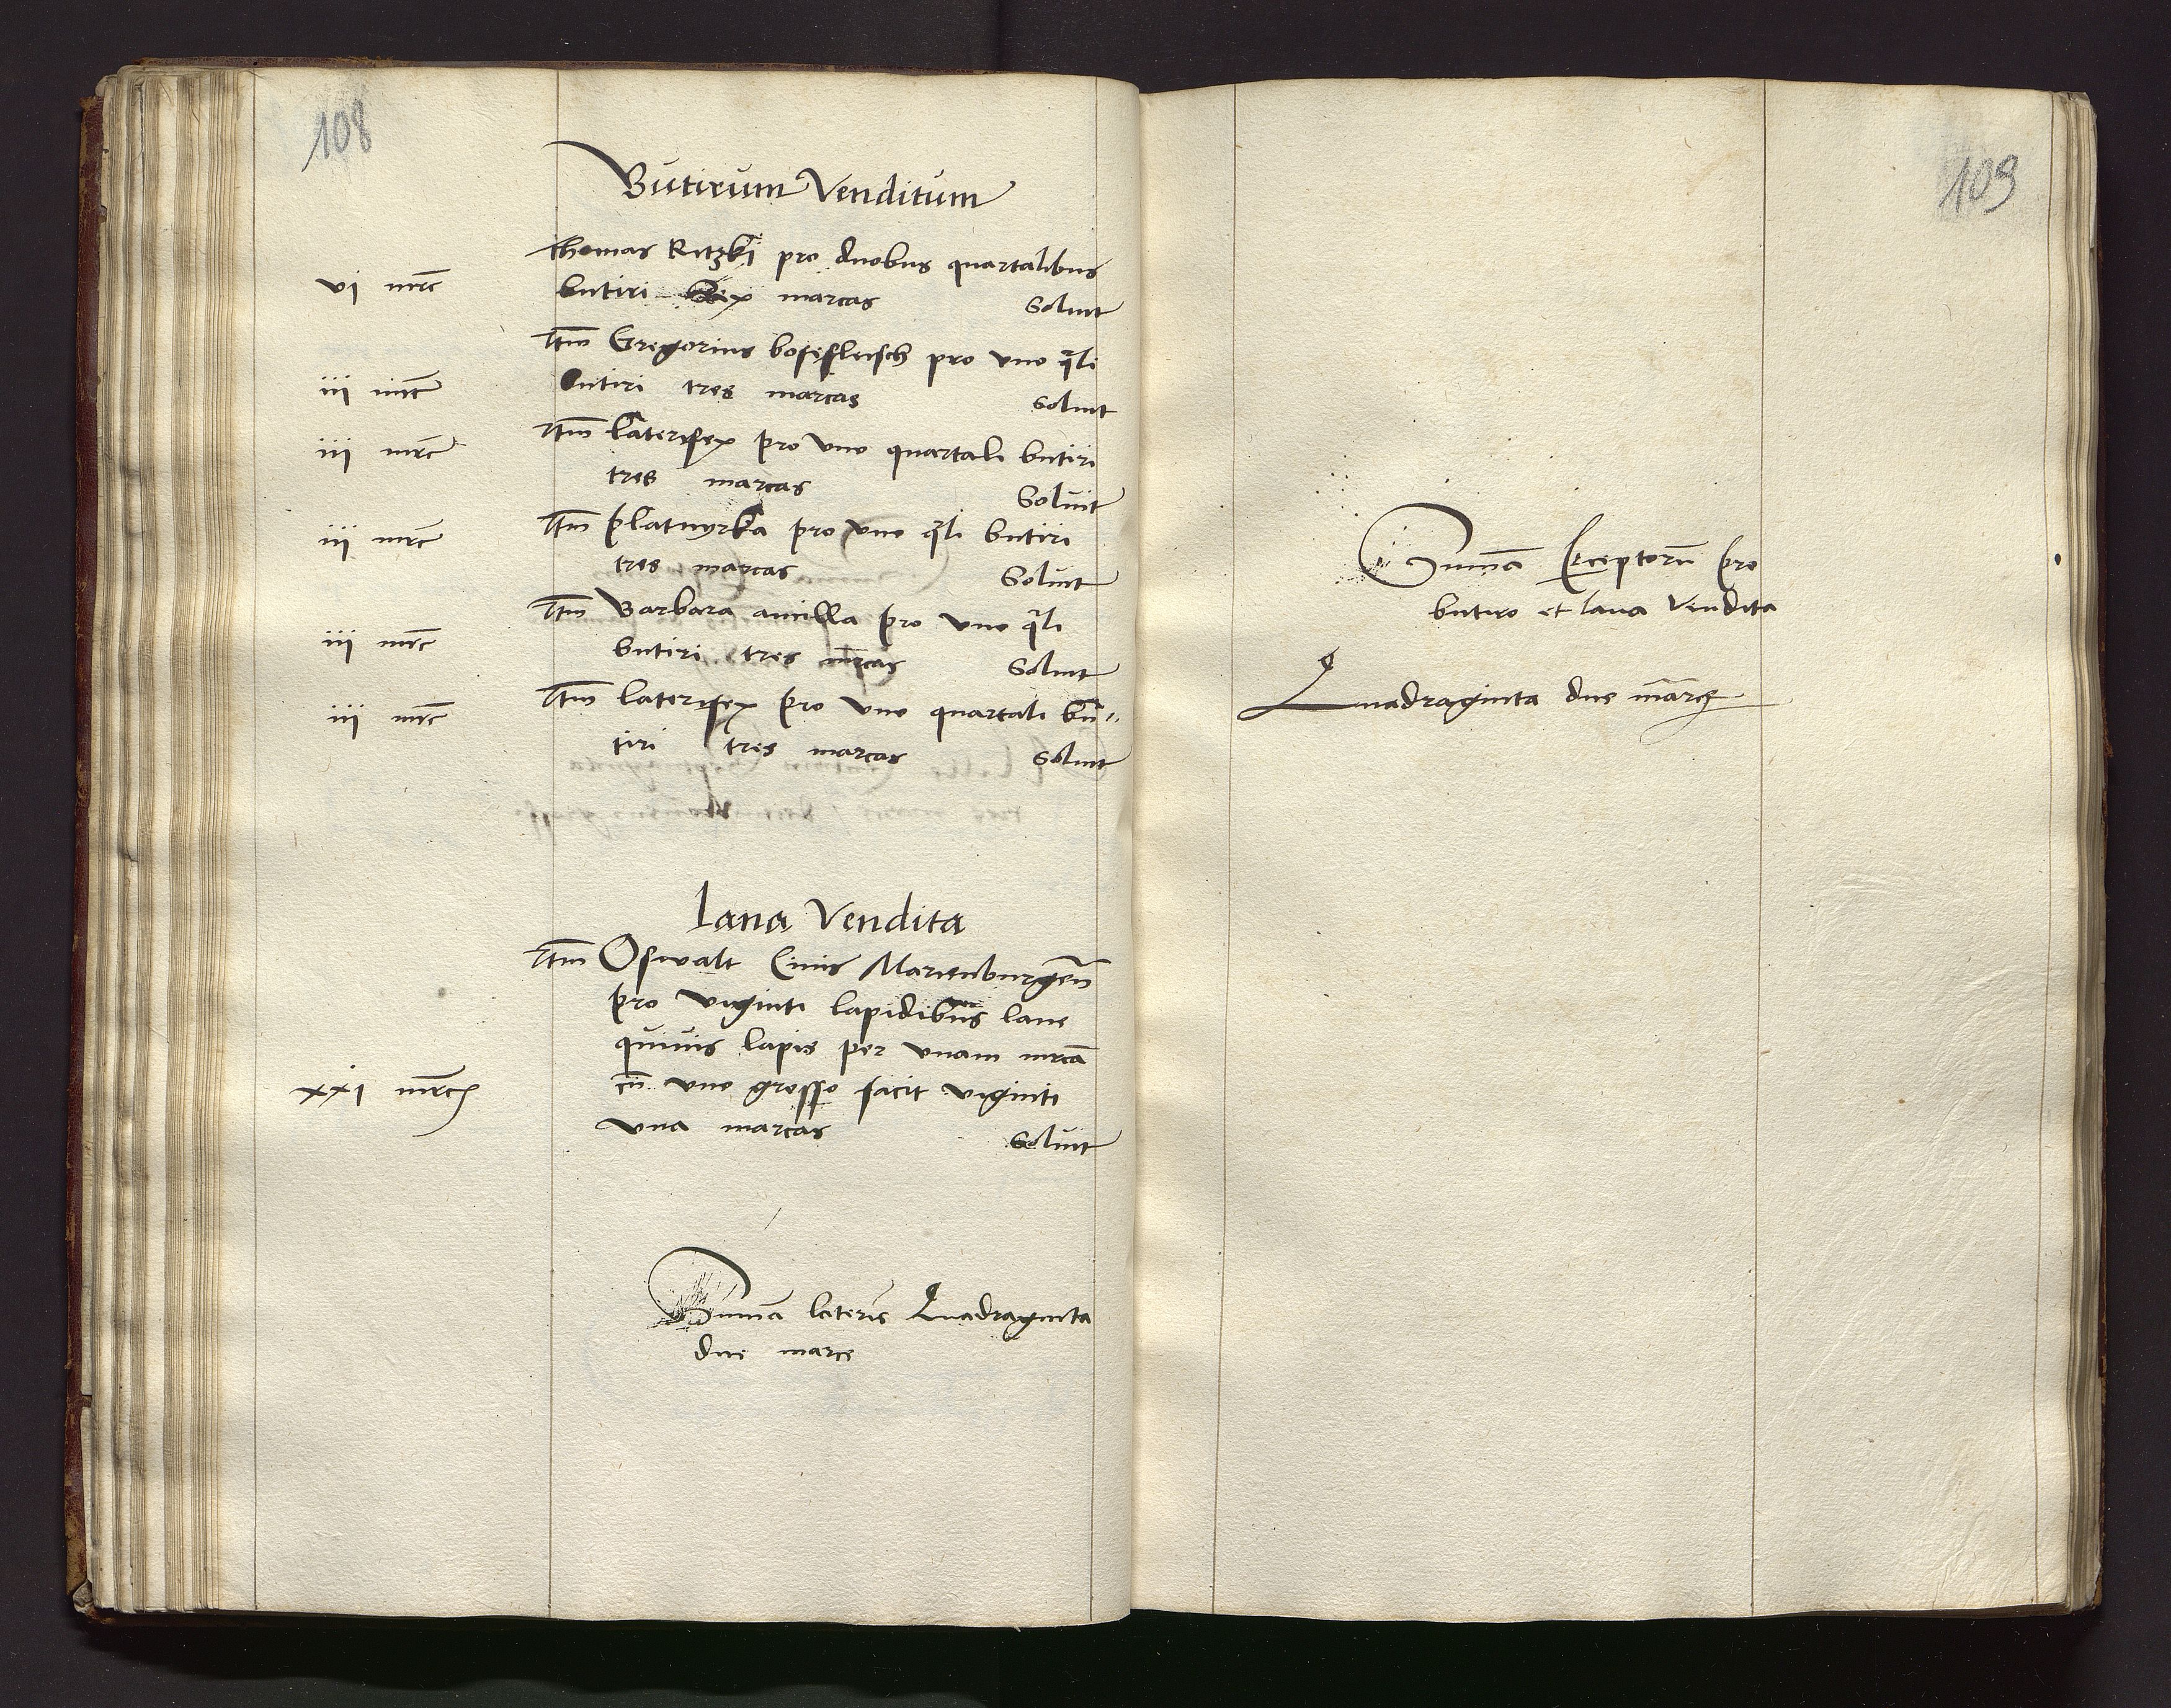 108
Butirum Venditum
Thomas Ritzki pro duobus quartalibus
vi mrc butiri Sex marcas Soluit
Itm Gregorius bosefleisch pro vno qrli
iii mrc butiri tres marcas Soluit
iii mrc Itm laterifex pro vno quartali butiri
tres marcas Soluit
iii mrc Itm platnyrka pro vno qrli butiri
tres marcas Soluit
Itm Barbara ancilla pro vno qrli
iii mrc butiri tres mrcas Soluit
iii mrc Itm laterifex pro vno quartali bu-
tiri tres marcas Soluit
lana Vendita
Itm Oswalt Ciuis Marienburgen
pro viginti lapidibus lane
quiuis lapis per vnam mrca
xxi mrc cu vno grosso facit viginti
vna marcas Soluit
Suma lateris Quadraginta
due marce
109
Suma perceptoru pro
butiro et lana Vendita
Quadraginta due marce